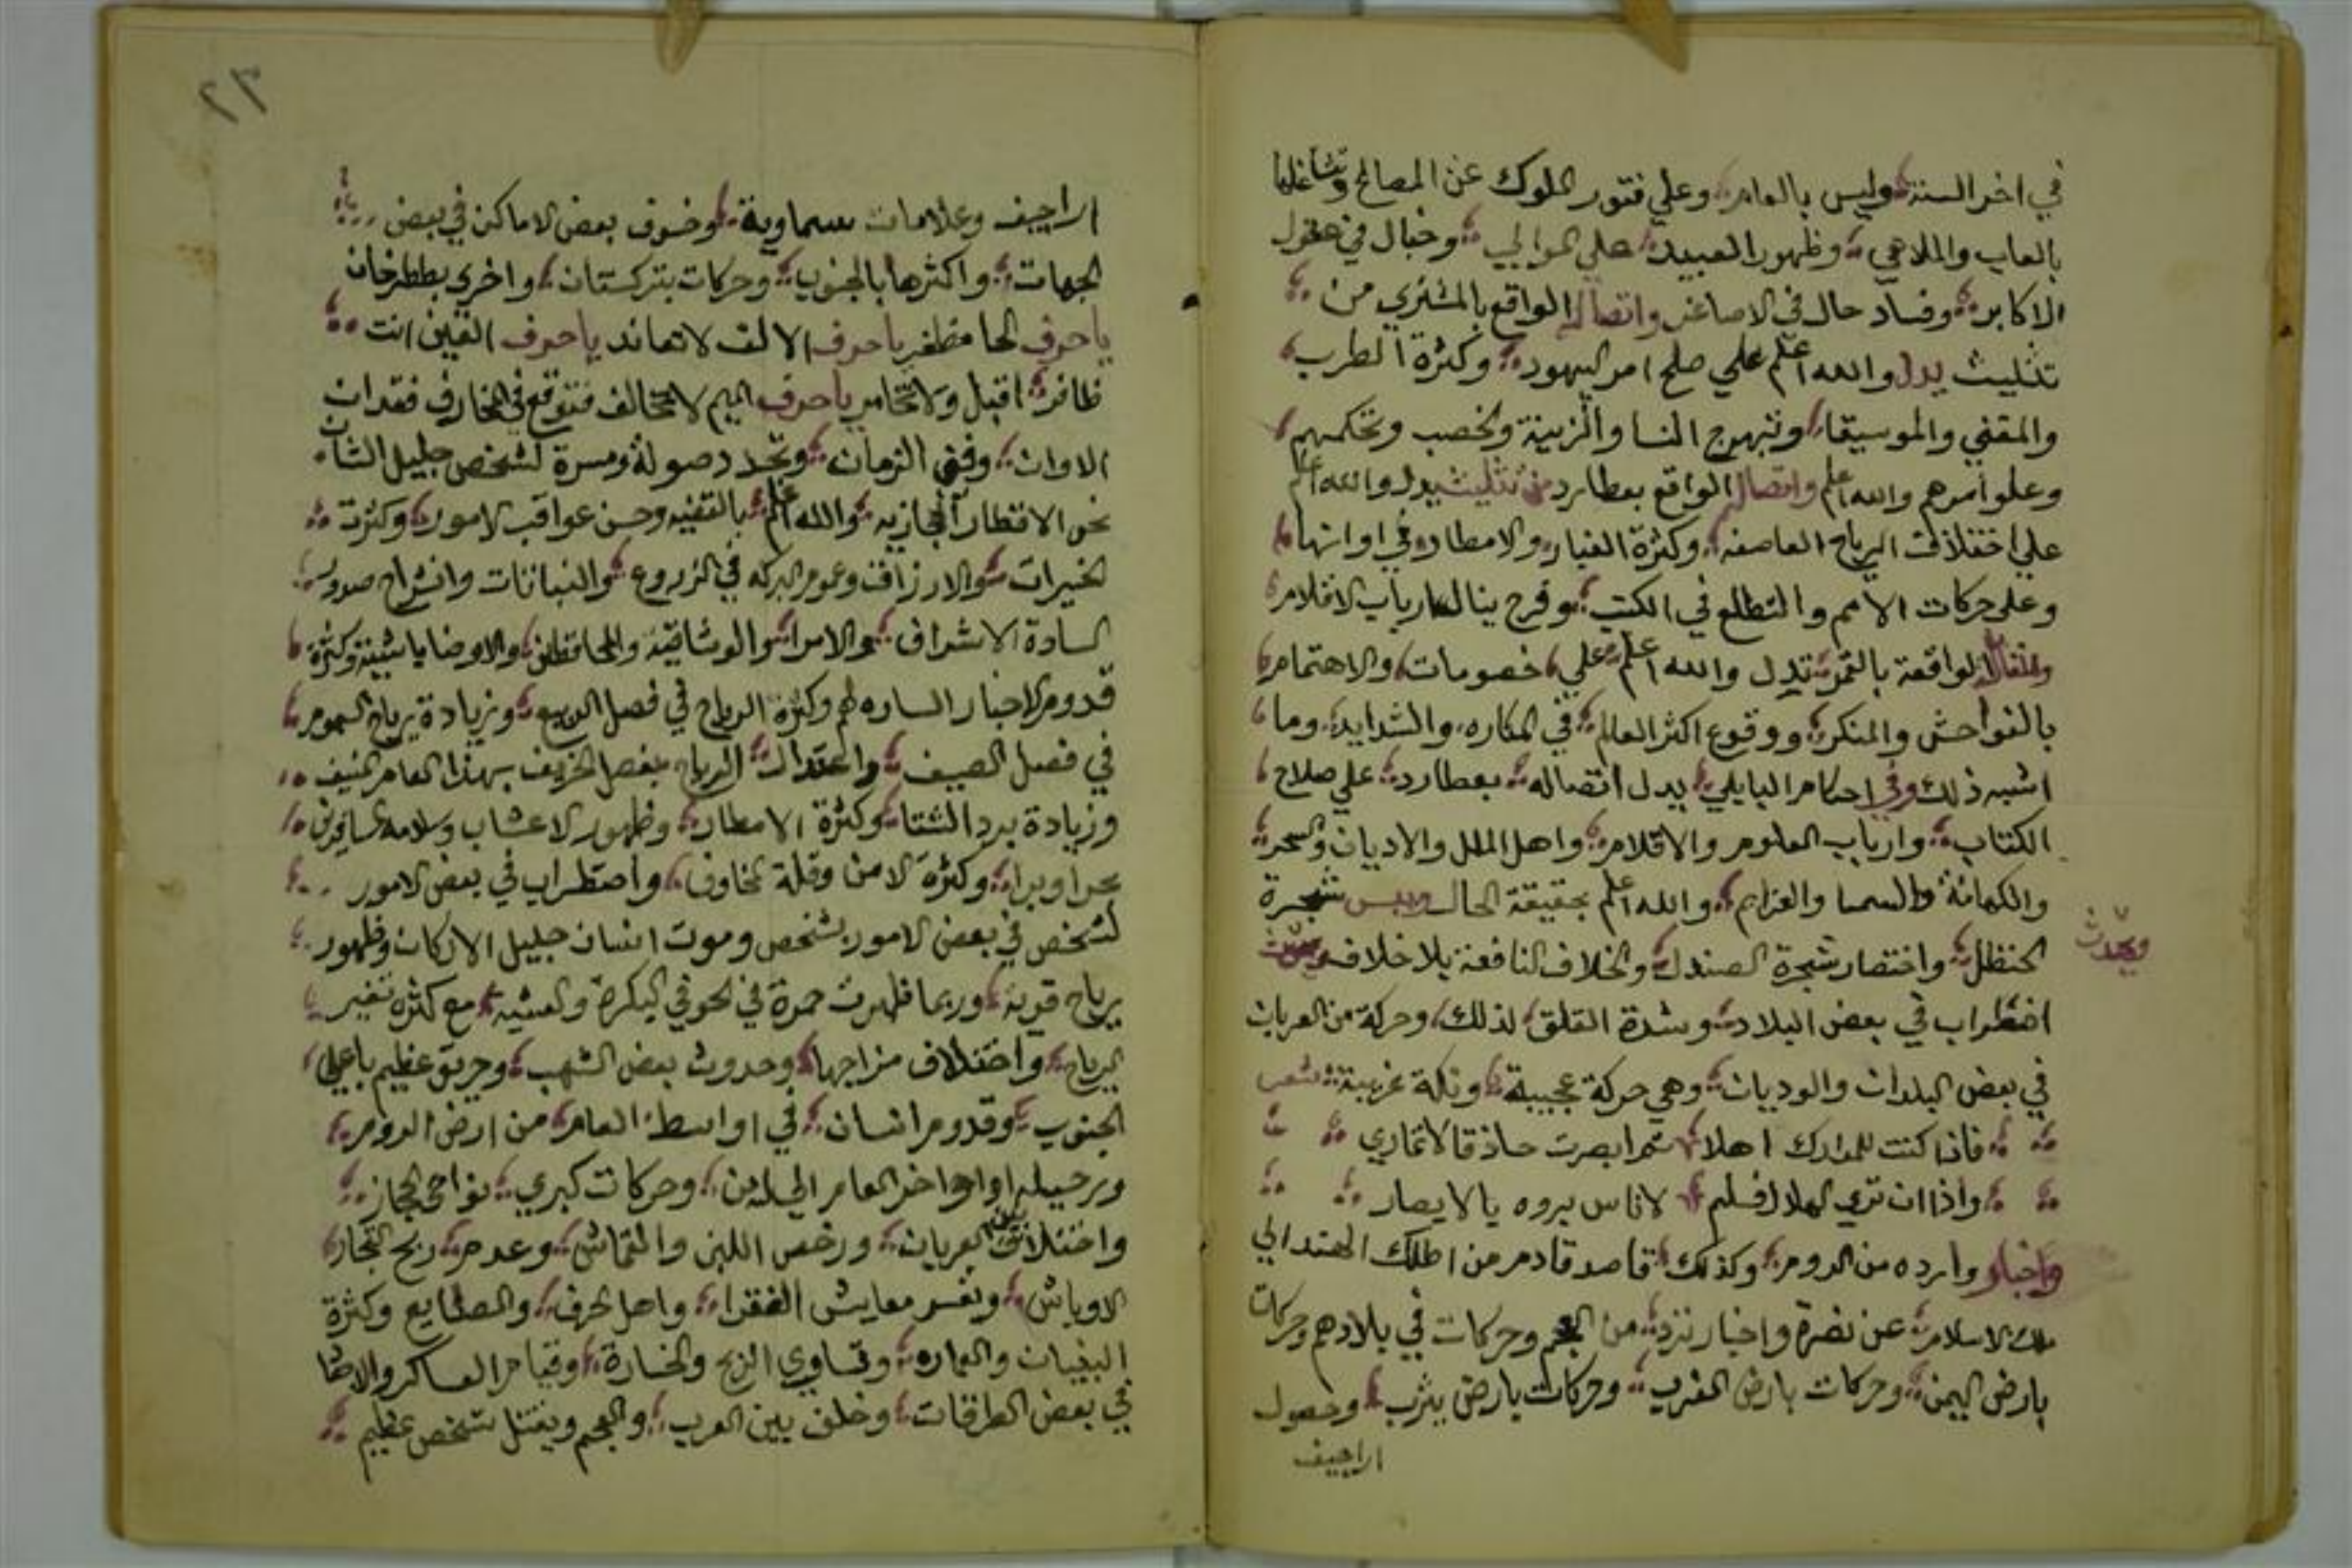 في اخر السنة وليس بالعام وعلي فتور الملوك عن المصالح وتشاغلها
بالعاب والملاهي وظهور العبيد علي الموالي وخبال في عقول
الاكابر وفساد حال في الاصاغر واتصال الواقع بالمشتري من
تثليث يدل والله اعلم علي صلح امر اليهود وكثرة الطرب
والمقني والموسيقا وتبهرج النسا والزينة وتخصب وتحكمهم
وعلو امرهم والله اعلم واتصال الواقع بعطارد من تثليث يدل والله اعلم
علي اختلاف الرياح العاصفه وكثرة الغبار والامطار في اوانها
وعلي حركات الامم والتطلع في الكتب وفرح ينال ارباب الاقلام
الواقعة بالقمر تدل والله اعلم علي خصومات والاهتمام
بالفواحش والمنكر ووقوع اكثر العالم في المكاره والشدايد وما
اشبه ذلك وفي احكام البابلي يدل اتصاله بعطارد علي صلاح
الكتاب وارباب العلوم والاقلام واهل الملل والاديان والسحر
والكهانة والسما والعزايم والله اعلم بحقيقة الحال ويبس شجرة
الحنظل واختصار شجرة الصندل والخلاف النافعة بلا خلاف
ويحدث
اضطراب في بعض البلاد وشدة القلق لذلك وحركة من العربان
في بعض البلدان والوديان وهي حركة عجيبة ونكة غريبة شعر
فاذا كنت للمدارك اهلا ثم ابصرت حاذقا لا تماري
واذا ان تري الهلال فسلم لاناس يروه يالايصار
واخبار وارده من الروم وكذلك قاصد قادم من اطلك الهند الي
ملك الاسلام عن نضرة واخبار نزد من العجم وحركات في بلادهم وحركات
بارض اليمن وحركات بارض المغرب وحركات بارض يثرب وحصول
اراجيف
٢٣
اراجيف وعلامات سماوية وخسوف بعض الاماكن في بعض
الجهات واكثرها بالجنوب وحركات بتركستان واخري بططرخان
ياحرف الحا مظفر ياحرف الالف لا تعاند ياحرف الغين انت
ظافر اقبل ولا تخامر ياحرف الميم لا تخالف فتوقع في المخارف فقد ان
الاوان وفني الزمان وتجدد صولة ومسرة لشخص جليل الشان
نحو الاقطار الحجازيه والله اعلم بالقضيه وحسن عواقب الامور وكثرت
الخيرات والارزاق وعموم البركه في الزروع والنباتات وانشراح صدور
السادة الاشراف والامرا والوشاقية والمحافظين والاوضاباشية وكثرة
قدوم الاخبار الساره لهم وكثرة الرياح في فصل الربيع وزيادة رياح السموم
في فصل الصيف واعتدال الرياح بفصل الخريف بهذا العام المنيف
وزيادة برد الشتا وكثرة الامطار وظهور الاعشاب وسلامه المسافرين
بحرا وبرا وكثرة الامن وقلة المخاوف واضطراب في بعض الامور
لشخص في بعض الامور بشخص وموت انسان جليل الاركان وظهور
رياح قوية وربما ظهرت حمرة في الجو في البكرة والعشيه مع كثرة تغير
الرياح واختلاف مزاجها وحدوث بعض الشهب وحريق عظيم باعلي
الجنوب وقدوم انسان في اواسط العام من ارض الروم
ورحيله اواخر العام الي وحركات كبري بنواحي الحجاز
واختلاف العربان ورخص اللبن والقماش وعدم ربح التجار
الاوباش وتغير معايش الفقراء واهل الحرف والصنايع وكثرة
البنيان والعماره وتساوي الربح والخسارة وقيام العساكر
في بعض الطرقات وخلف بين العرب والعجم ويقتل شخص عظيم